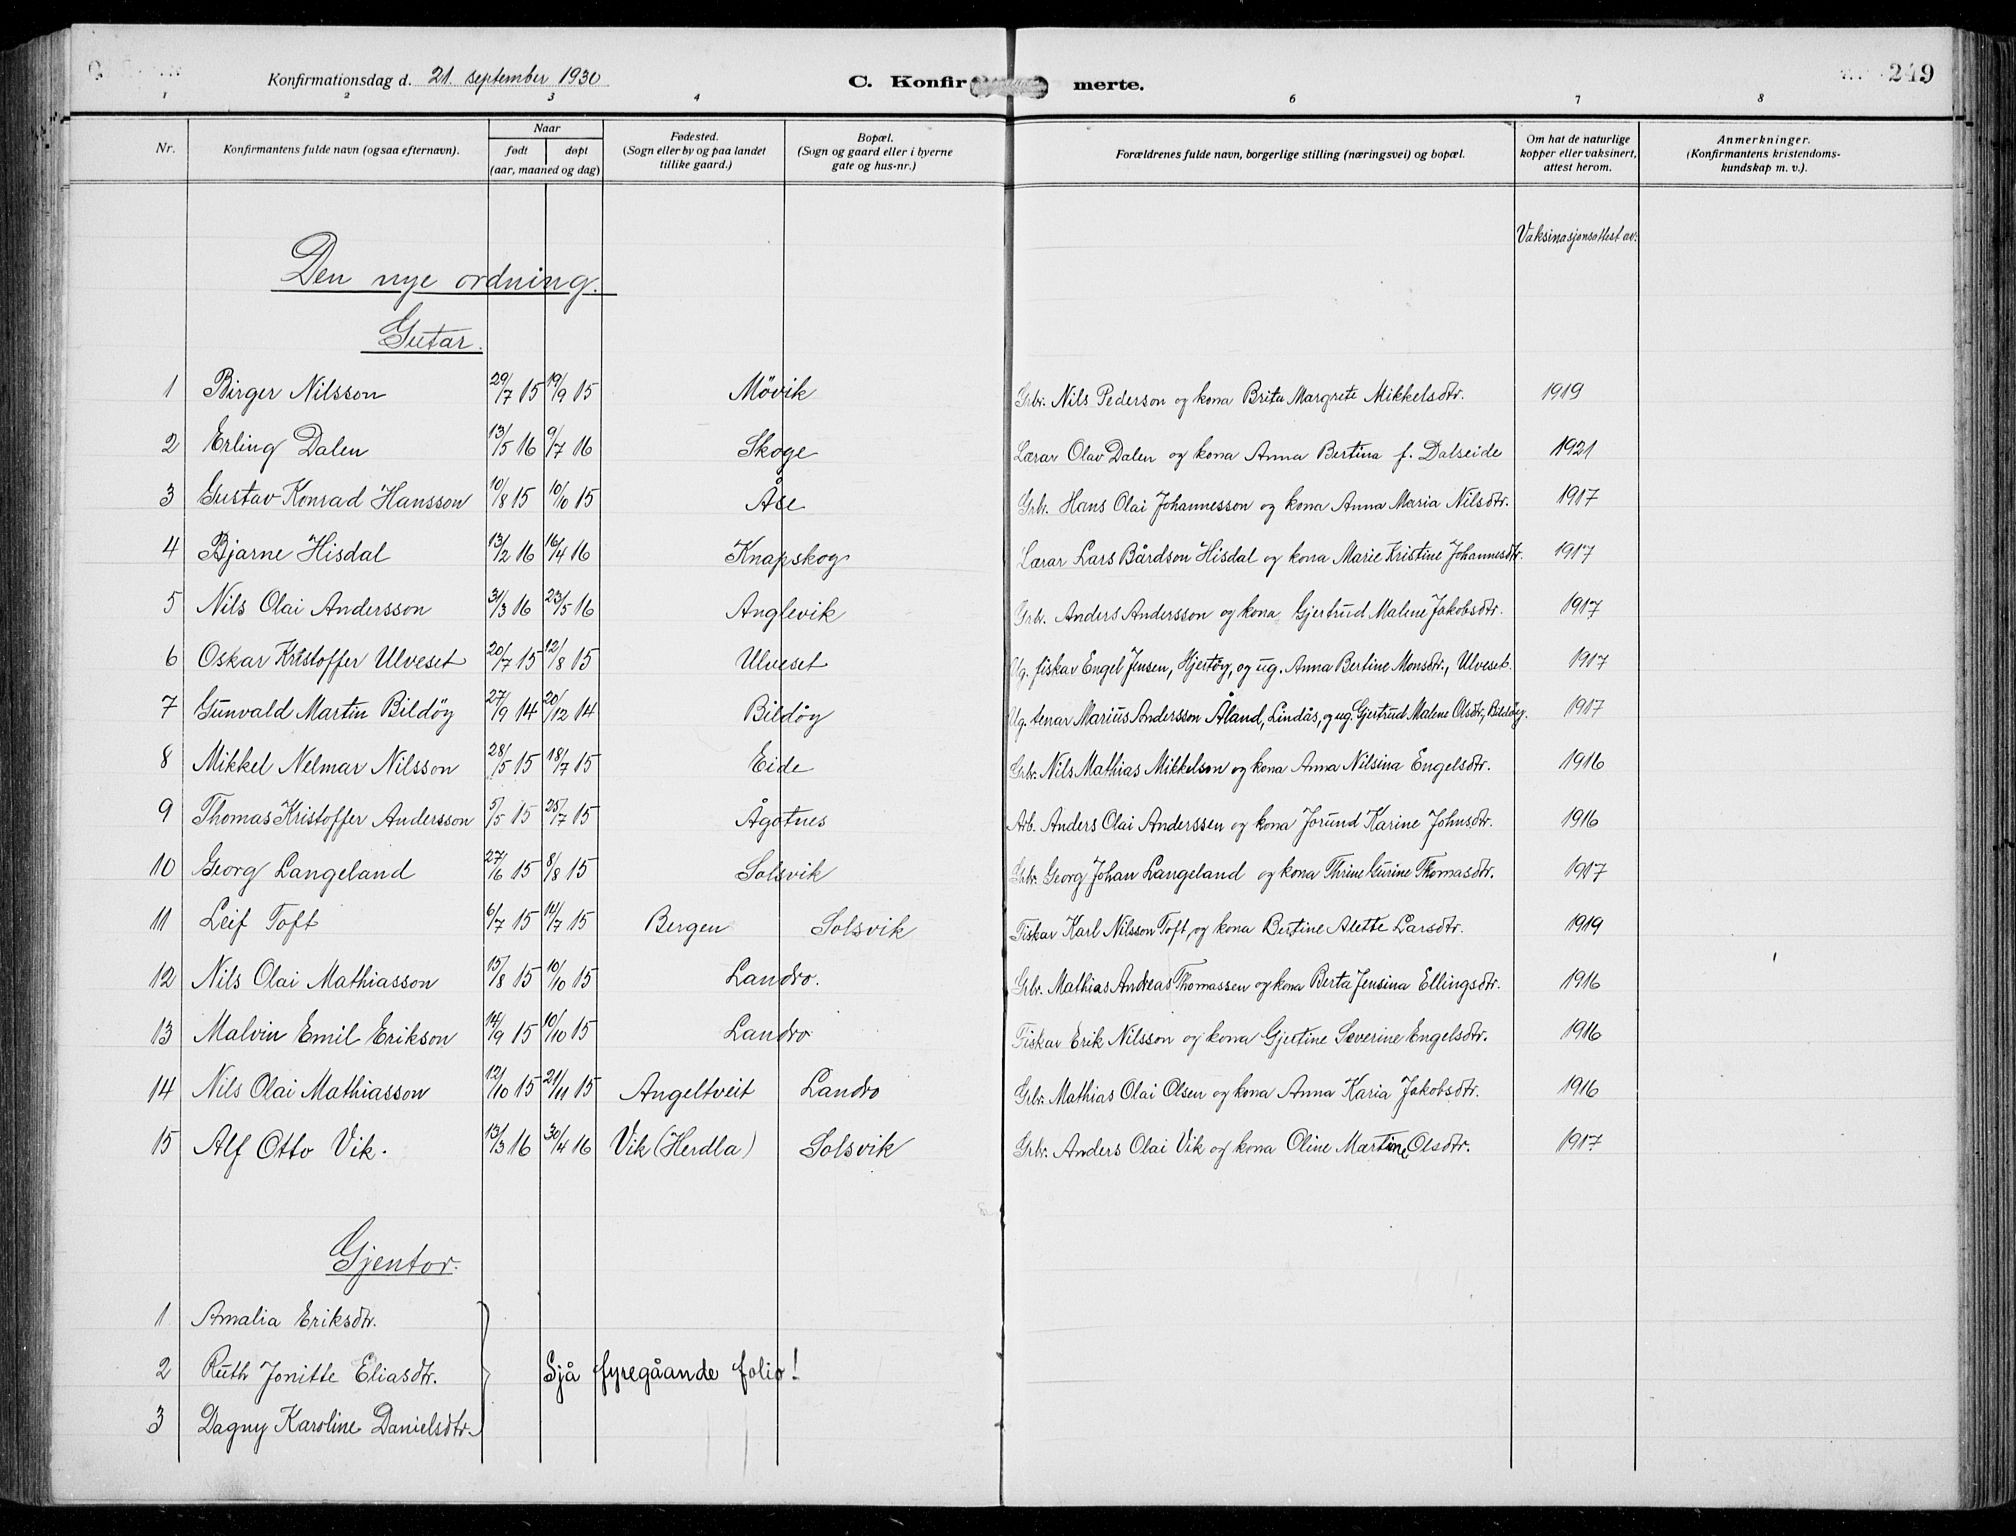 Konfirmationsdag d. 21. september 1930 C. Konfirmerte. 249
1 2 3 4 6 7 8
Nr. Konfirmantens fulde navn (ogsaa efternavn). Naar født døpt (aar, maaned og dag) Fødested. (Sogn eller by og paa landet tillike gaard.) Bopæl. (Sogn og gaard eller i byerne gate og hus-nr.) Forældrenes fulde navn, borgerlige stilling (næringsvei) og bopæl. Om hat de naturlige kopper eller vaksinert, attest herom. Anmerkninger. (Konfirmantens kristendoms-kundskap m. v.).
Vaksinasjonsattest av:
Den nye ordning.
Gutar.
1 Birger Nilsson 29/7 15 19/9 15 Møvik Grbr. Nils Pederson og kona Brita Margrete Mikkelsdtr. 1919
2 Erling Dalen 13/5 16 9/7 16 Skoge Lærar Olav Dalen og kona Anna Bertina f. Dalseide 1921
3 Gustav Konrad Hansson 10/8 15 10/10 15 Åse Grbr. Hans Olai Johannesson og kona Anna Maria Nilsdtr. 1917
4 Bjarne Hisdal 13/2 16 16/4 16 Knapskog Lærar Lars Bårdson Hisdal og kona Marie Kristine Johannesdtr. 1917
5 Nils Olai Andersson 31/3 16 23/5 16 Anglevik Grbr. Anders Andersson og kona Gjertrud Malene Jakobsdtr. 1917
6 Oskar Kristoffer Ulveset 20/7 15 12/8 15 Ulveset Ug. fiskar Engel Jensen, Hjertøy, og ug. Anna Bertine Monsdtr., Ulveset. 1917
7 Gunvald Martin Bildøy 27/9 14 20/12 14 Bildøy Ug. tenar Marius Andersson Åland, Lindås, og ug. Gjertrud Malene Olsdtr., Bildøy. 1917
8 Mikkel Nelmar Nilsson 28/5 15 18/7 15 Eide Grbr. Nils Mathias Mikkelson og kona Anna Nilsina Engelsdtr. 1916
9 Thomas Kristoffer Andersson 5/5 15 25/7 15 Ågotnes Arb. Anders Olai Anderssen og kona Jorund Karine Johnsdtr. 1916
10 Georg Langeland 27/6 15 8/8 15 Solsvik Grbr. Georg Johan Langeland og kona Thrine Gurine Thomasdtr. 1917
11 Leif Toft 6/7 15 14/7 15 Bergen Solsvik Fiskar Karl Nilsson Toft, og kona Bertine Alette Larsdtr. 1919
12 Nils Olai Mathiasson 15/8 15 10/10 15 Landro. Grbr. Mathias Andreas Thomassen og kona Berta Jensina Ellingsdtr. 1916
13 Malvin Emil Erikson 14/9 15 10/10 15 Landro Fiskar Erik Nilsson og kona Gjertine Severine Engelsdtr. 1916
14 Nils Olai Mathiasson 12/10 15 21/11 15 Angeltveit Landro Grbr. Mathias Olai Olsen og kona Anna Karia Jakobsdtr. 1916
15 Alf Otto Vik. 13/3 16 30/4 16 Vik (Herdla) Solsvik Grbr. Anders Olai Vik og kona Oline Martine Olsdtr. 1917
Gjentor.
1 Amalia Eriksdtr.
2 Ruth Jonitte Eliasdtr. Sjå fyregåande folio!
3 Dagny Karoline Danielsdtr.